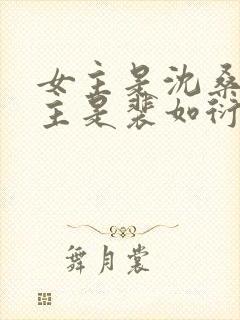 女主是沈桑
主是裴如衍
舞月裳